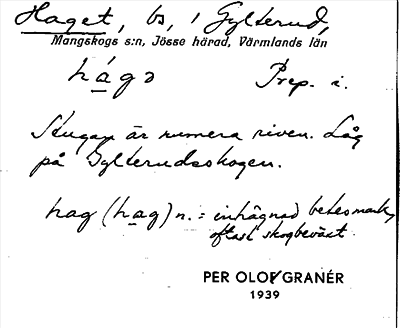 Haget, bs, i Gylterud,
Mangskogs s:n, Jösse härad, Värmlands län
hágə Prep. i.
Stugan är numera riven. Låg
på Gylterudsskogen.
hag (hag) n. = inhägnad betesmark,
oftast skogbeväxt.
PER OLOF GRANÉR
1939